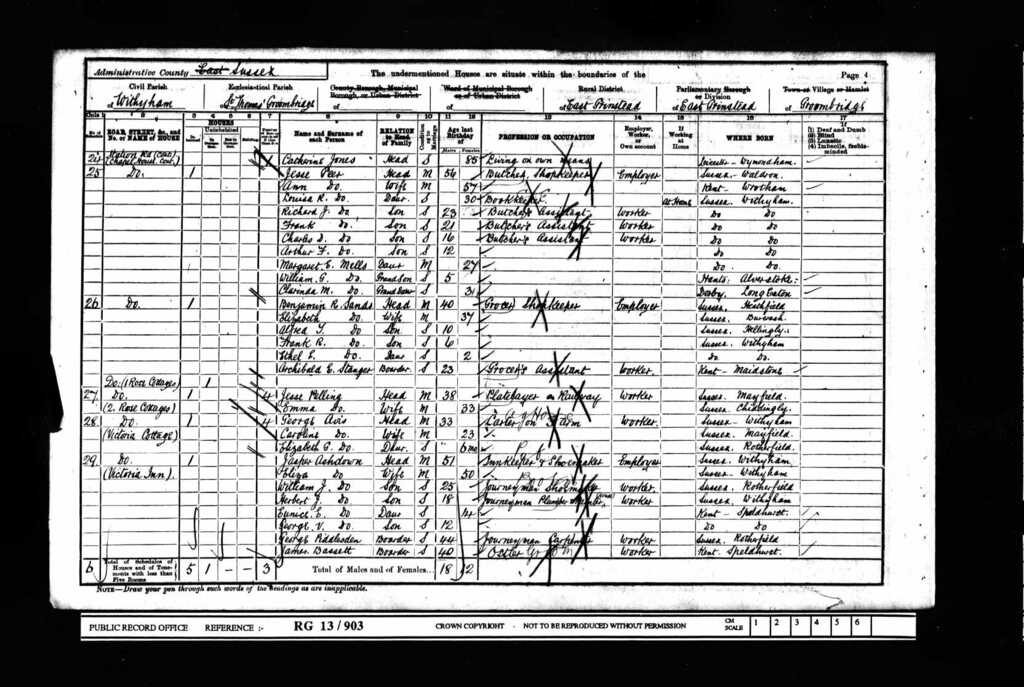 Administrative County East Sussex
The undermentioned Houses are situate within the boundaries of the
Page 4
Civil Parish
of Withyham
Ecclesiastical Parish
of St Thomas' Groombridge
County Borough, Municipal Borough, or Urban District
of
Ward of Municipal Borough or of Urban District
of
Rural District
of East Grinstead
Parliamentary Borough or Division
of East Grinstead
Town or Village or Hamlet
of Groombridge
ROAD, STREET, &c., and No. or NAME of HOUSE
HOUSES
Name and Surname of each Person
RELATION to Head of Family
Age last Birthday of
PROFESSION OR OCCUPATION
Employer, Worker, or Own account
If Working at Home
WHERE BORN
(1) Deaf and Dumb
(2) Blind
(3) Lunatic
(4) Imbecile, feeble-minded
24 Station Rd (cont) Catherine Jones Head S 85 Living on own means Leicester - Wymondham
25 Do. 1 Jesse Peer Head M 56 Butcher Shopkeeper Employer Sussex - Waldron
Ann Do. Wife M 57 Kent - Wrotham
Louisa R. Do. Daur S 30 Bookkeeper At Home Sussex Withyham
Richard J. Do Son S 23 Butcher's Assistant Worker Do Do
Frank Do. Son S 21 Butcher's Assistant Worker Do Do
Charles D. Do Son S 16 Butcher's Assistant Worker Do Do
Arthur F. Do Son S 12 Do Do
Margaret E. Mells Daur M 27 Do. Do.
William G. Do. Grandson S 5 Hants. Alverstoke
Clarinda M. Do. S Derby Long Eaton
26 Do. 1 Benjamin R. Sands Head M 40 Grocer Shopkeeper Employer Sussex
Elizabeth Do Wife M 37 Sussex Burwash
Alfred Do Son S 10 Sussex Hellingly
Frank R. Do. Son S 6 Sussex Withyham
Ethel E. Do. Daur S 2 Do Do.
Archibald E. Stanger Boarder S 23 Grocer's Assistant Worker Kent - Maidstone
Do. (1 Rose Cottages) 1
27 Do. 1 4 Jesse Pelling Head M 38 Platelayer on Railway Worker Sussex Mayfield
(2. Rose Cottages) Emma Do. Wife M 33 Sussex Chiddingly
28 Do. 1 4 George Avis Head M 33 Carter on Farm Worker Sussex - Withyham
(Victoria Cottage) Caroline Do. Wife M 23 Sussex Mayfield
Elizabeth G. Do Daur S Sussex Rotherfield
29 Do. 1 Jasper Ashdown Head M 51 Innkeeper & Shoemaker Employer Sussex Withyham
(Victoria Inn). Eliza Do Wife M 50 Sussex Withyham
William J. Do Son S 25 Journeyman Shoemaker Worker Sussex Rotherfield
Herbert J. Do Son S 18 Journeyman Plumber Worker Sussex Withyham
Eunice E. Do Daur S 14 Kent - Speldhurst
George V. Do. Son S 12 Do Do
George Boarder S 44 Journeyman Carpenter Worker Sussex Rotherfield
James Bassett Boarder S 40 Ostler Worker Kent Speldhurst
6 Total of Schedules of Houses and of Tenements with less than Five Rooms 5 1 - - 3 Total of Males and of Females... 18 12
NOTE—Draw your pen through such words of the headings as are inapplicable.
PUBLIC RECORD OFFICE REFERENCE :- RG 13 / 903 CROWN COPYRIGHT - NOT TO BE REPRODUCED WITHOUT PERMISSION CM SCALE 1 2 3 4 5 6